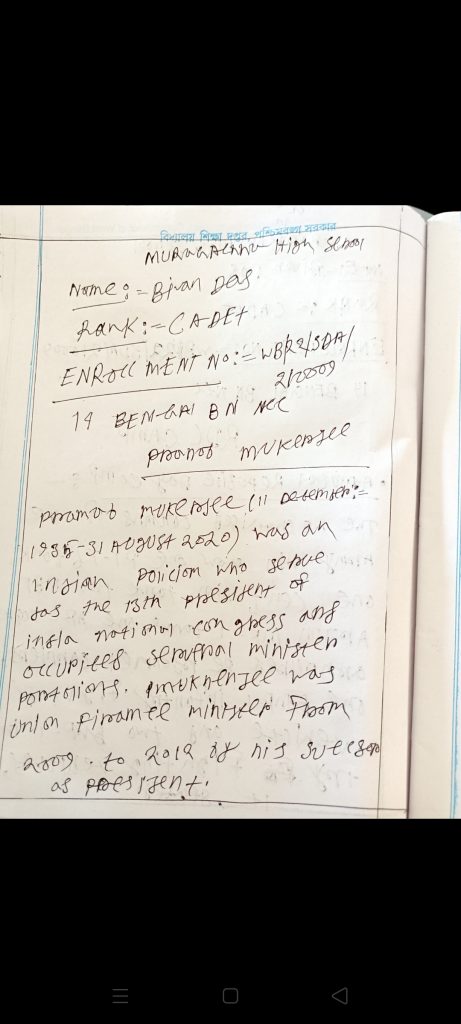 বিদ্যালয় শিক্ষা দপ্তর, পশ্চিমবঙ্গ সরকার
High School
Name:- Bjvan Das.
Rank:- CADET
ENROLLMENT No:- WB/R2/SDA/
14 BENGAL BN NCC
Pranab MUKERJEE
Pranab MUKERJEE (11 December:-
1935-31 AUGUST 2020) was an
Indian Policion who serve
sas the 13th President of
india national congress and
occupited serveral minister
Portolions. Mukherjee was
Union Finamce minister From
2009 to 2012 of his
as President.